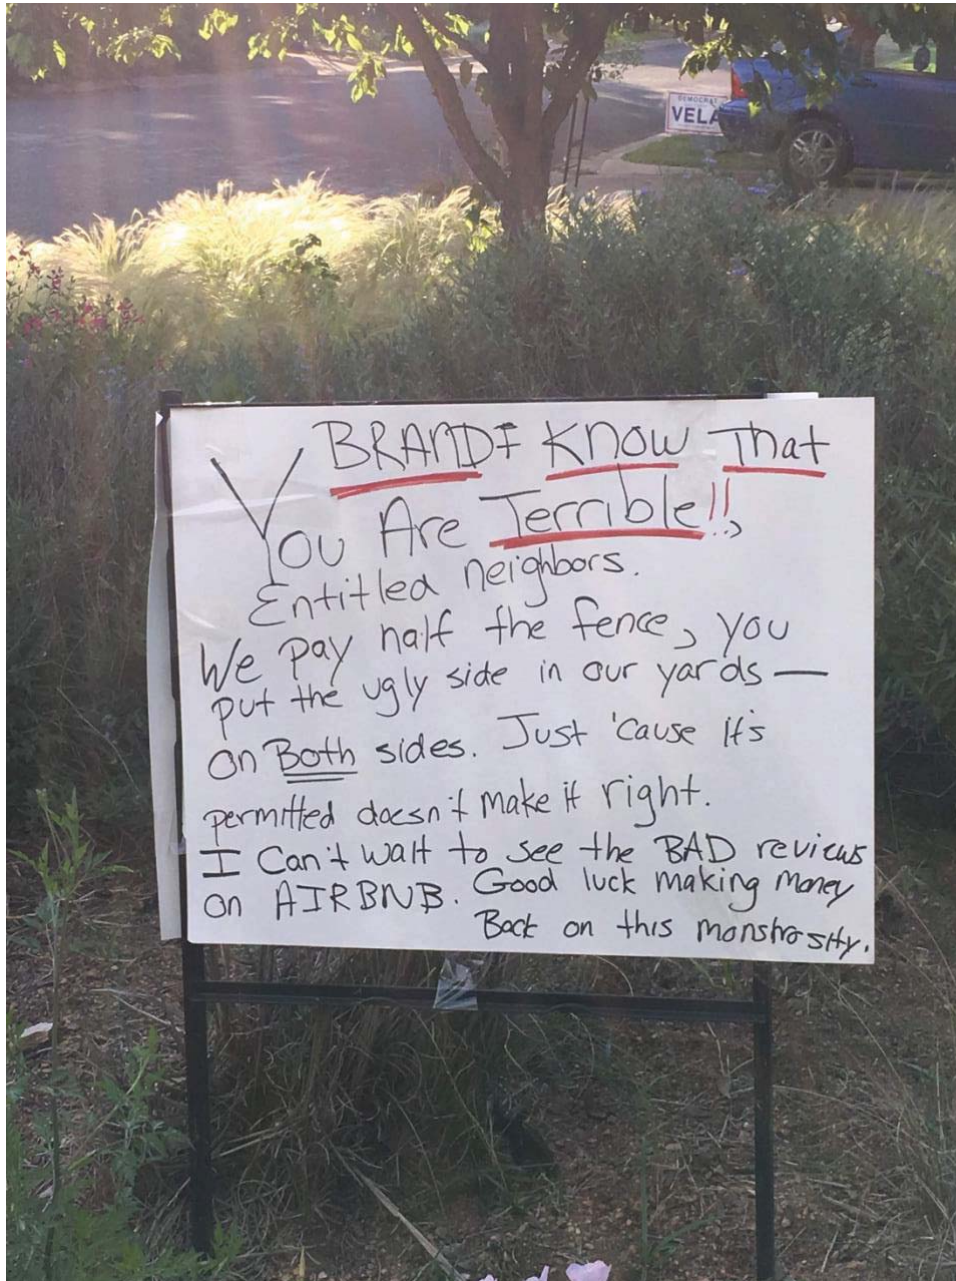 DEMOCRAT
VELA
BRANDI KNOW That
You Are Terrible!!,
Entitled neighbors.
We pay half the fence, you
put the ugly side in our yards —
on Both sides. Just 'cause it's
permitted doesn't make it right.
I Can't wait to see the BAD reviews
on AIRBNB. Good luck making money
Back on this monstrosity.